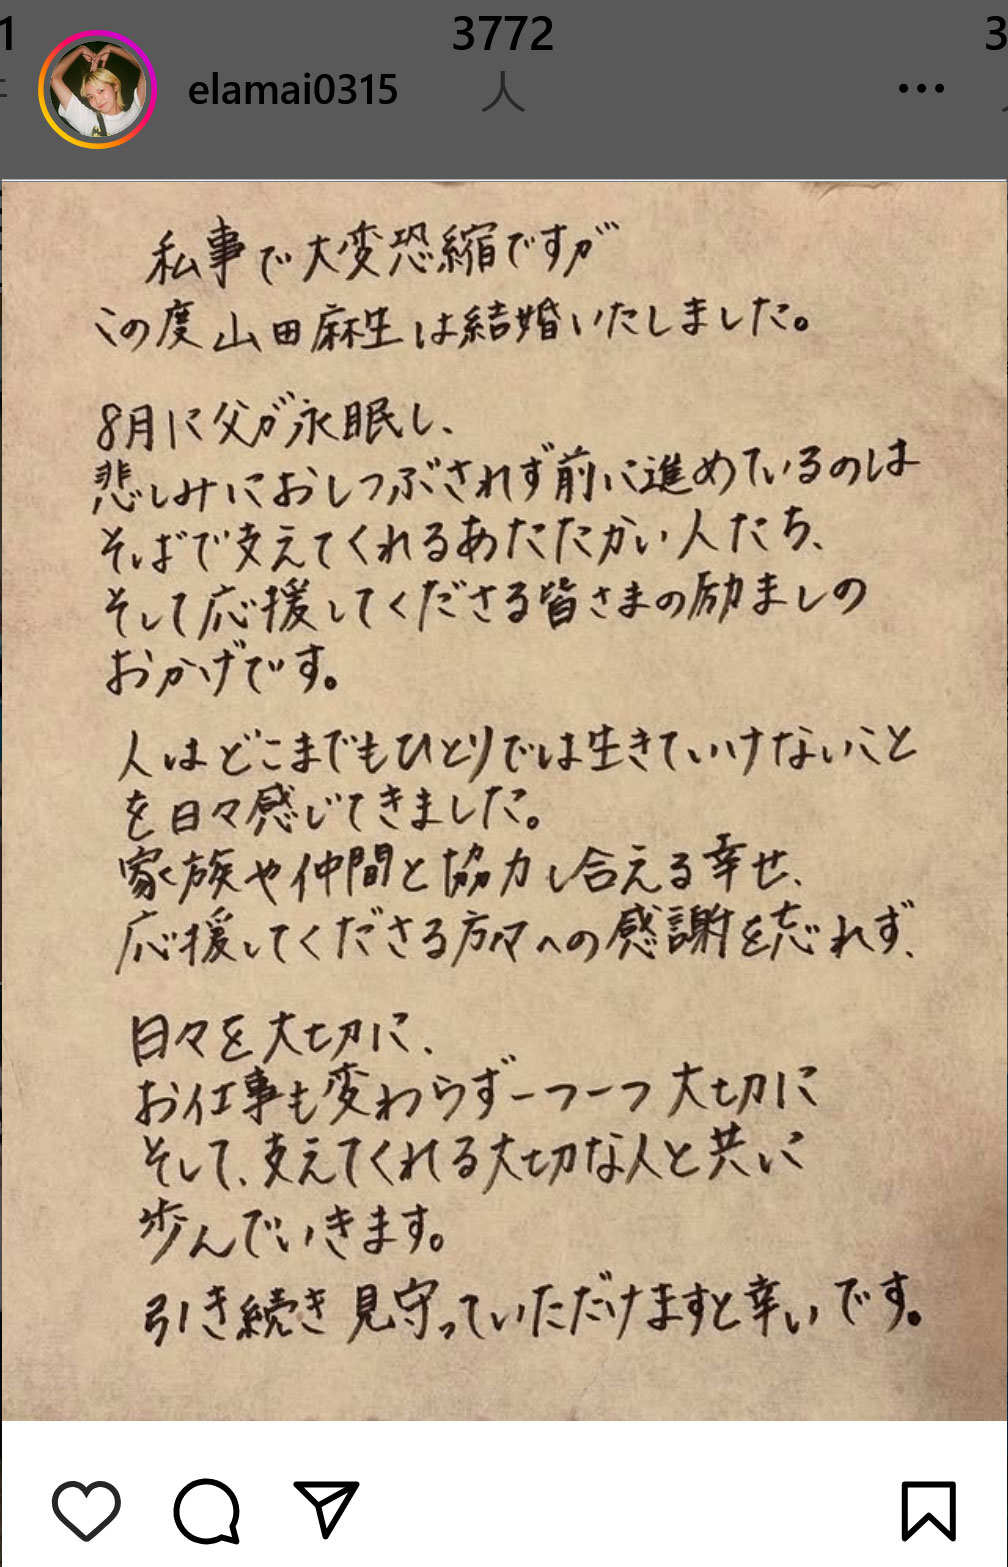 1
3772
3
elamai0315
人
私事で大変恐縮ですが
この度山田麻生は結婚いたしました。
8月に父が永眠し、
悲しみにおしつぶされず前に進めているのは
そばで支えてくれるあたたかい人たち、
そして応援してくださる皆さまの励ましの
おかげです。
人はどこまでもひとりでは生きていけないこと
を日々感じてきました。
家族や仲間と協力し合える幸せ、
応援してくださる方々への感謝を忘れず、
日々を大切に、
お仕事も変わらず一つ一つ大切に
そして、支えてくれる大切な人と共に
歩んでいきます。
引き続き見守っていただけますと幸いです。